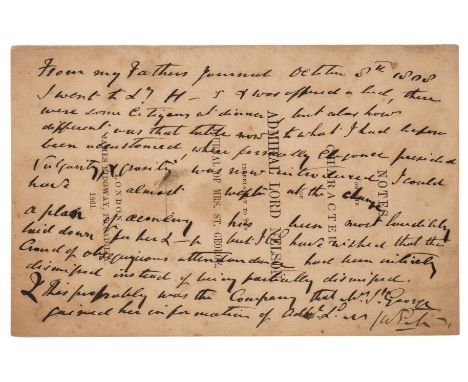 From my Fathers Journal October 8th 1808
I went to Ly H—s & was offered a bed, there
were some Citizens at dinner, but alas how
different was that table now to what I had before
been accustomed, where formerly Elegance presided
Vulgarity & was now introduced I could
have almost wept at the change
a plan of œconomy has been most laudibly
laid down for her but I have wished that the
Croud of obsequious attendants had been entirely
dismiped instead of being partially dismiped.
This probably was the Company that Mrs St. George
gained her information of
NOTES
CHARACTER
ADMIRAL LORD NELSON
JOURNAL OF MRS. ST. GEORGE.
LONDON
JAMES RIDGWAY, PICCADILLY
1861.